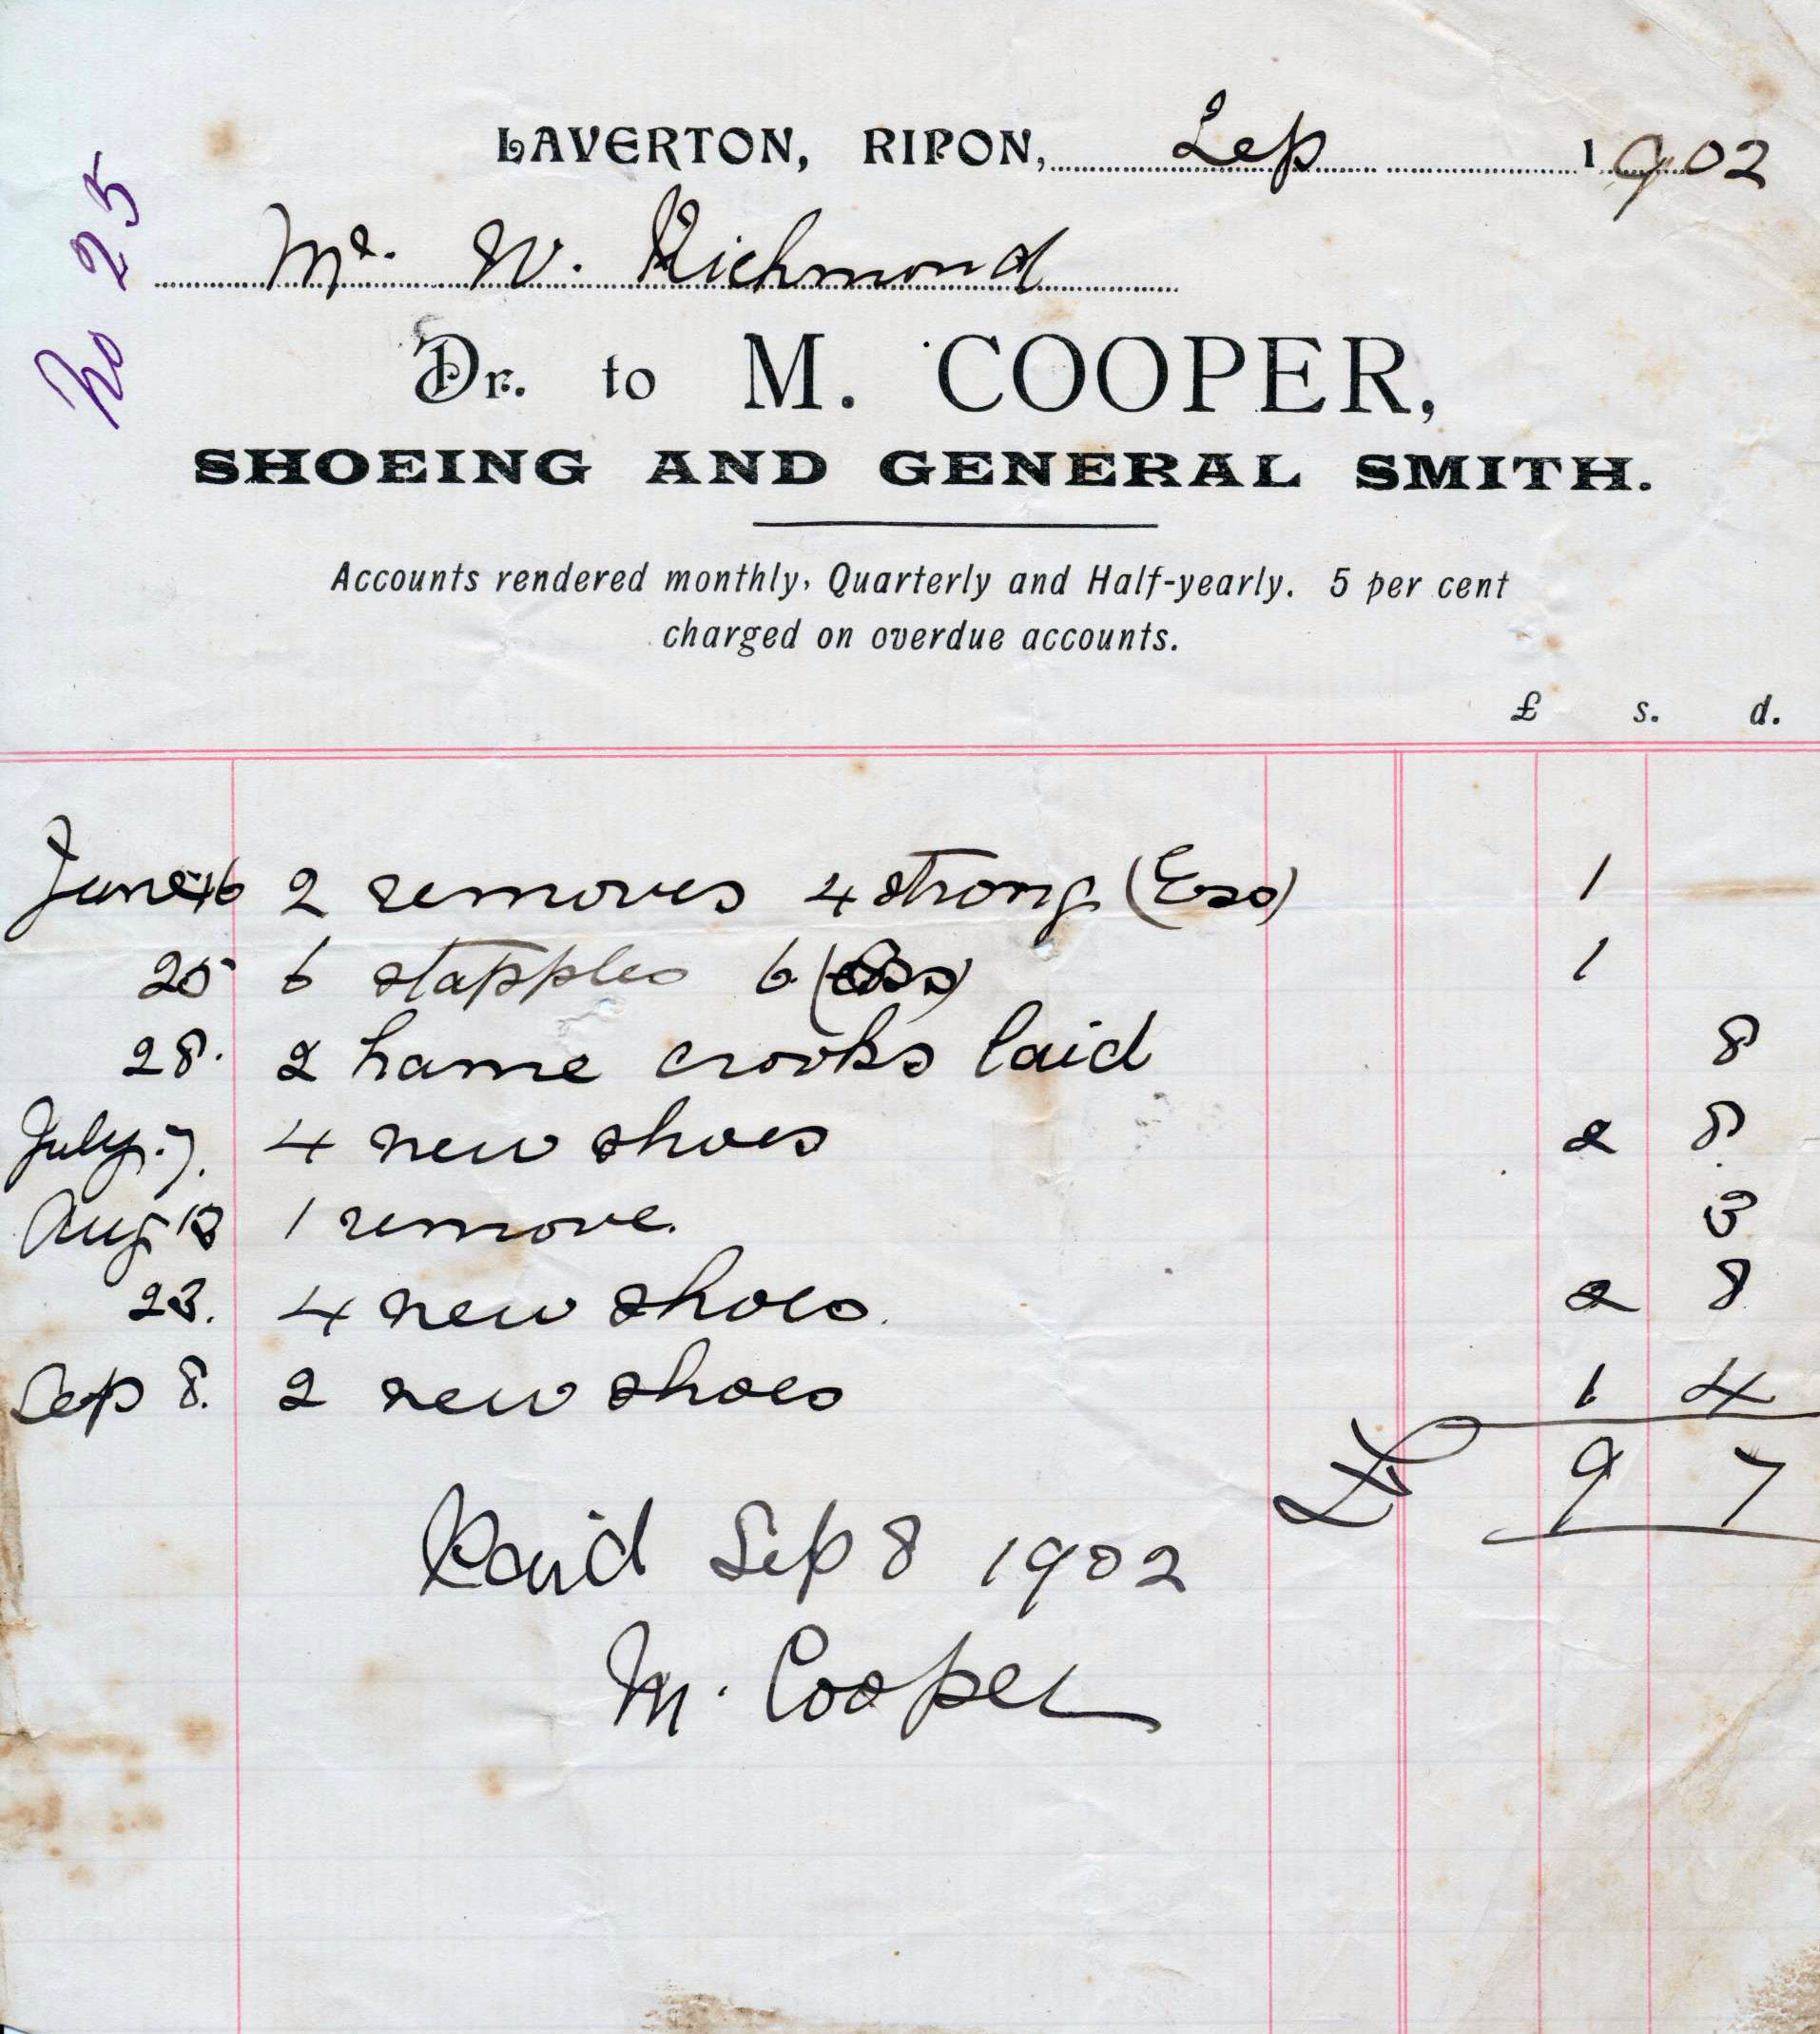 LAVERTON, RIPON, Sep 1902
No 25
Mr. W. Richmond
Dr. to M. COOPER,
SHOEING AND GENERAL SMITH.
Accounts rendered monthly, Quarterly and Half-yearly. 5 per cent
charged on overdue accounts.
£ s. d.
June 16 2 removes 4 strong (Ess) 1
25 6 stapples 6 (Ess) 1
28. 2 hame crooks laid 8
July 7. 4 new shoes 2 8
Aug 13 1 remove. 3
23. 4 new shoes. 2 8
Sep 8. 2 new shoes 1 4
£ 9 7
Paid Sep 8 1902
M. Cooper